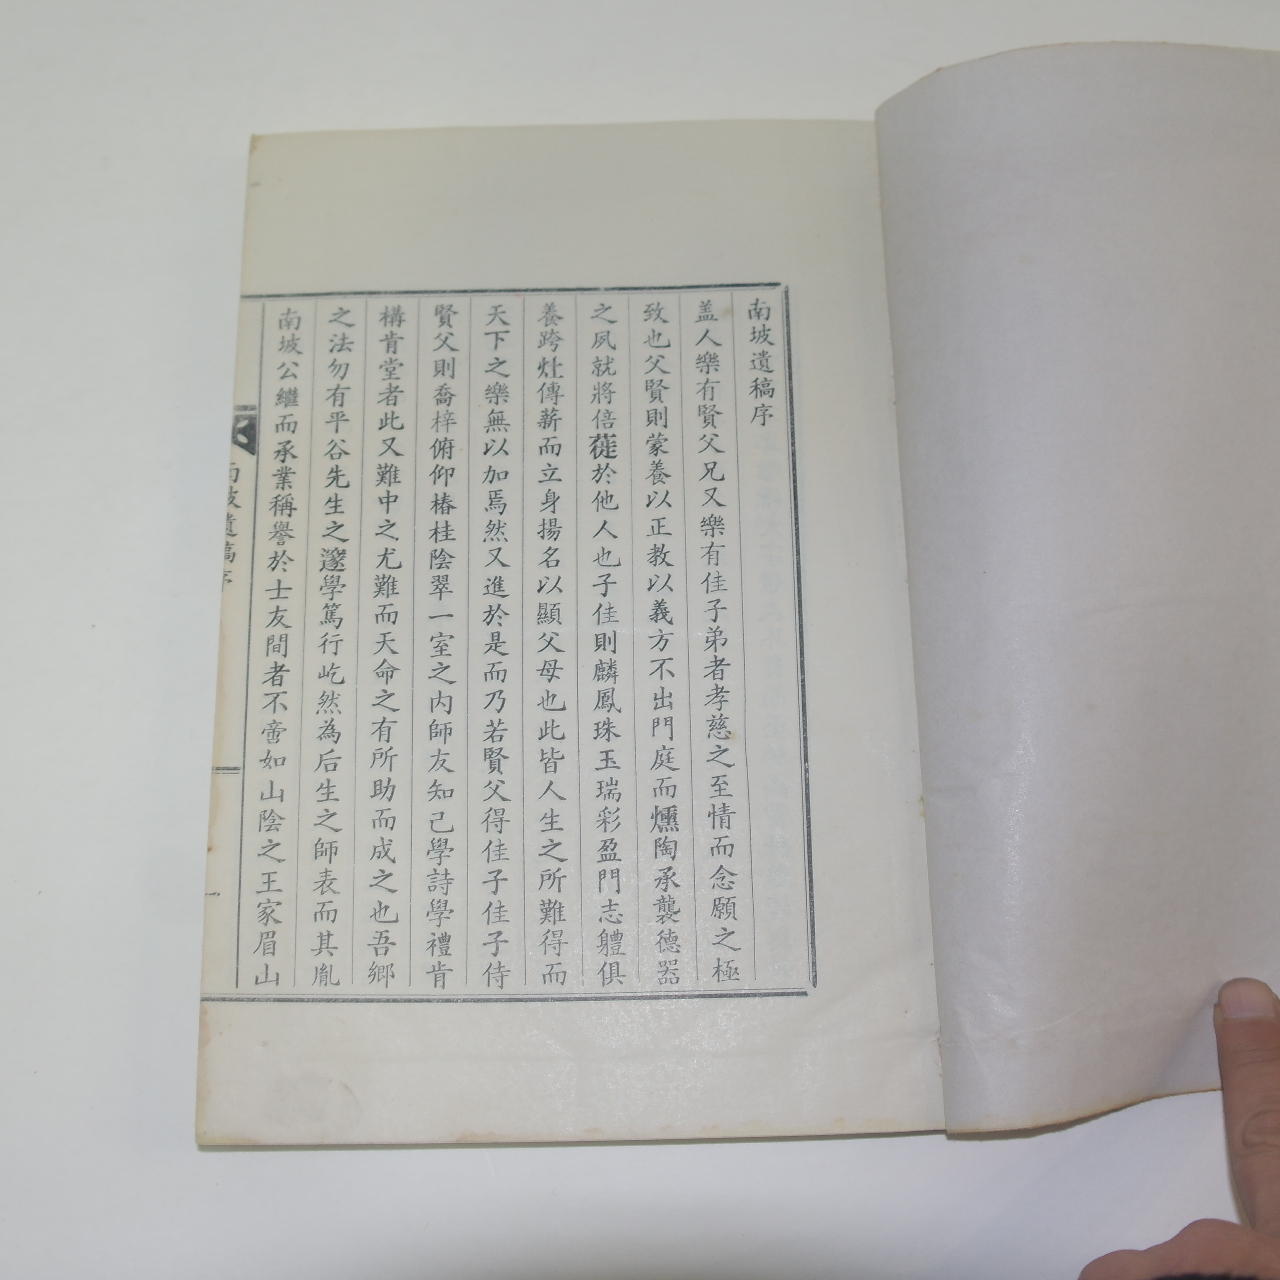 南坡遺稿序
盖人樂有賢父兄又樂有佳子弟者孝慈之至情而念願之極
致也父賢則蒙養以正教以義方不出門庭而燻陶承襲德器
之夙就將倍蓰於他人也子佳則麟鳳珠玉瑞彩盈門志軆俱
養跨灶傳薪而立身揚名以顯父母也此皆人生之所難得而
天下之樂無以加焉然又進於是而乃若賢父得佳子佳子侍
賢父則喬梓俯仰椿桂陰翠一室之内師友知己學詩學禮肯
構肯堂者此又難中之尤難而天命之有所助而成之也吾鄉
之法勿有平谷先生之邃學篤行屹然為后生之師表而其胤
南坡公繼而承業稱譽於士友間者不啻如山陰之王家眉山
南坡遺稿序
一